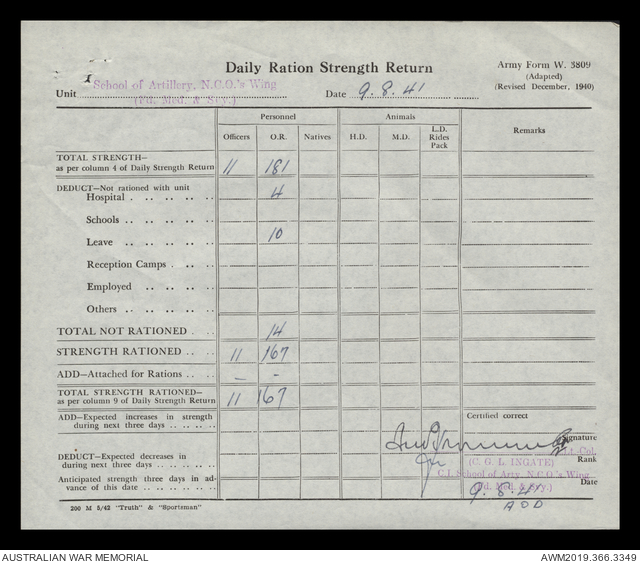 Daily Ration Strength Return
Army Form W. 3809
(Adapted)
(Revised December, 1940)
Unit School of Artillery, N.C.O.'s Wing
(Fd. Med. & Svy.)
Date 9.8.41
Personnel Animals Remarks
Officers O.R. Natives H.D. M.D. L.D. Rides Pack
TOTAL STRENGTH—
as per column 4 of Daily Strength Return 11 181
DEDUCT—Not rationed with unit
Hospital 4
Schools
Leave 10
Reception Camps
Employed
Others
TOTAL NOT RATIONED 14
STRENGTH RATIONED 11 167
ADD—Attached for Rations — -
TOTAL STRENGTH RATIONED—
as per column 9 of Daily Strength Return 11 167
ADD—Expected increases in strength
during next three days
Certified correct
Signature
DEDUCT—Expected decreases in
during next three days
Lt.-Col.
Rank
(C. G. L. INGATE)
C.I. School of Arty. N.C.O's Wing
Anticipated strength three days in ad-
vance of this date
(Fd. Med. & Svy.)
Date
9.8.41
200 M 5/42 "Truth" & "Sportsman"
AUSTRALIAN WAR MEMORIAL
AWM2019.366.3349